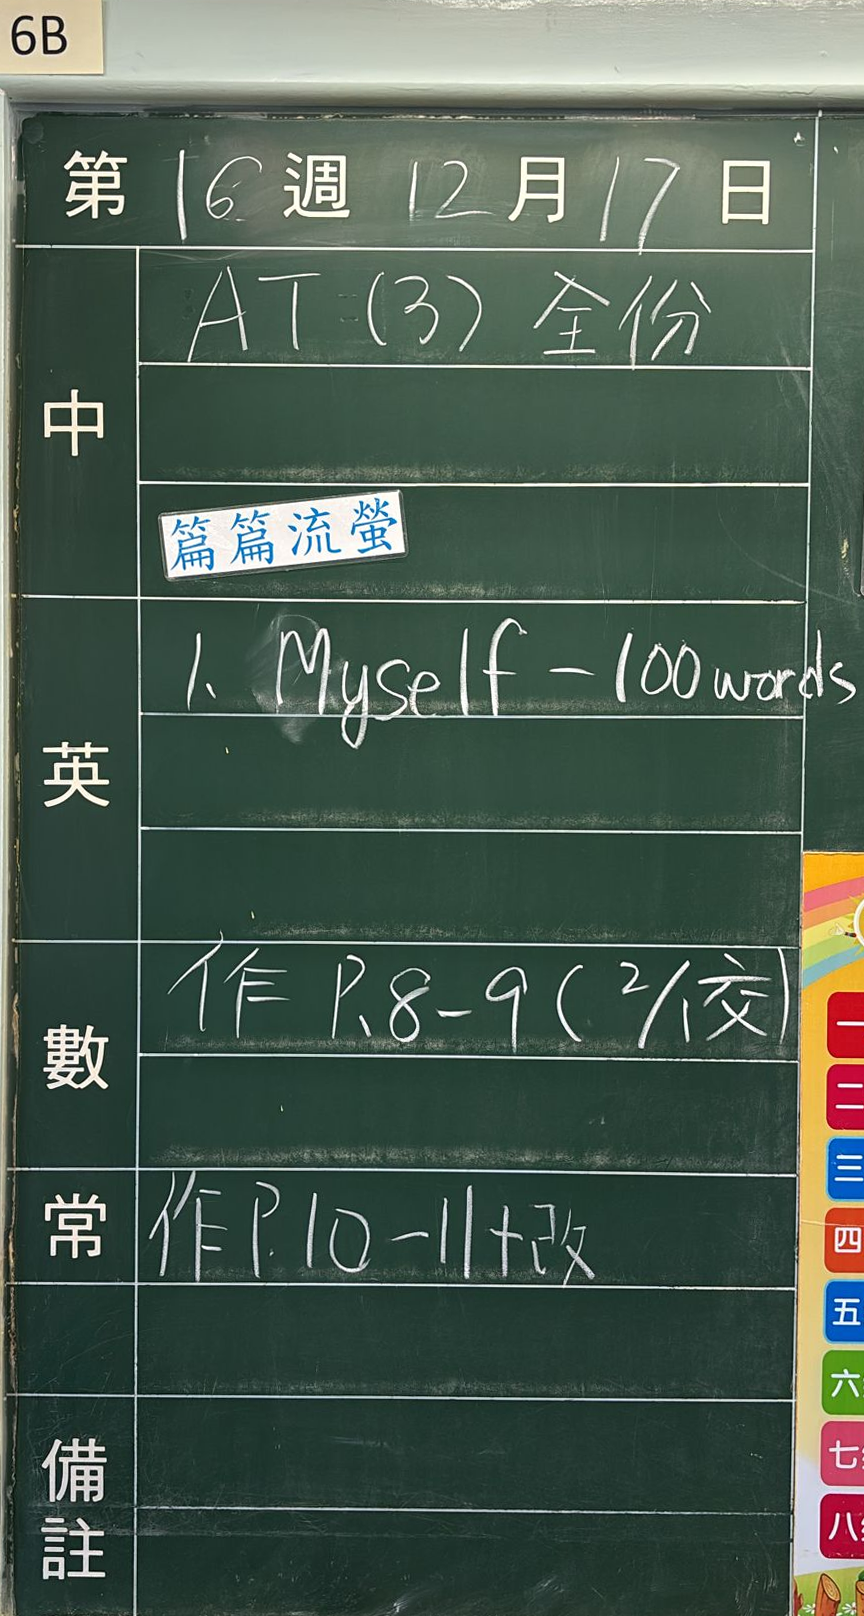 6B
第 16 週 12 月 17 日
中
AT (3) 全份
篇篇流螢
英
1. Myself - 100 words
數
作 P.8-9 (2/1交)
常
作 P.10-11+改
備註
一
二
三
四
五
六
七
八